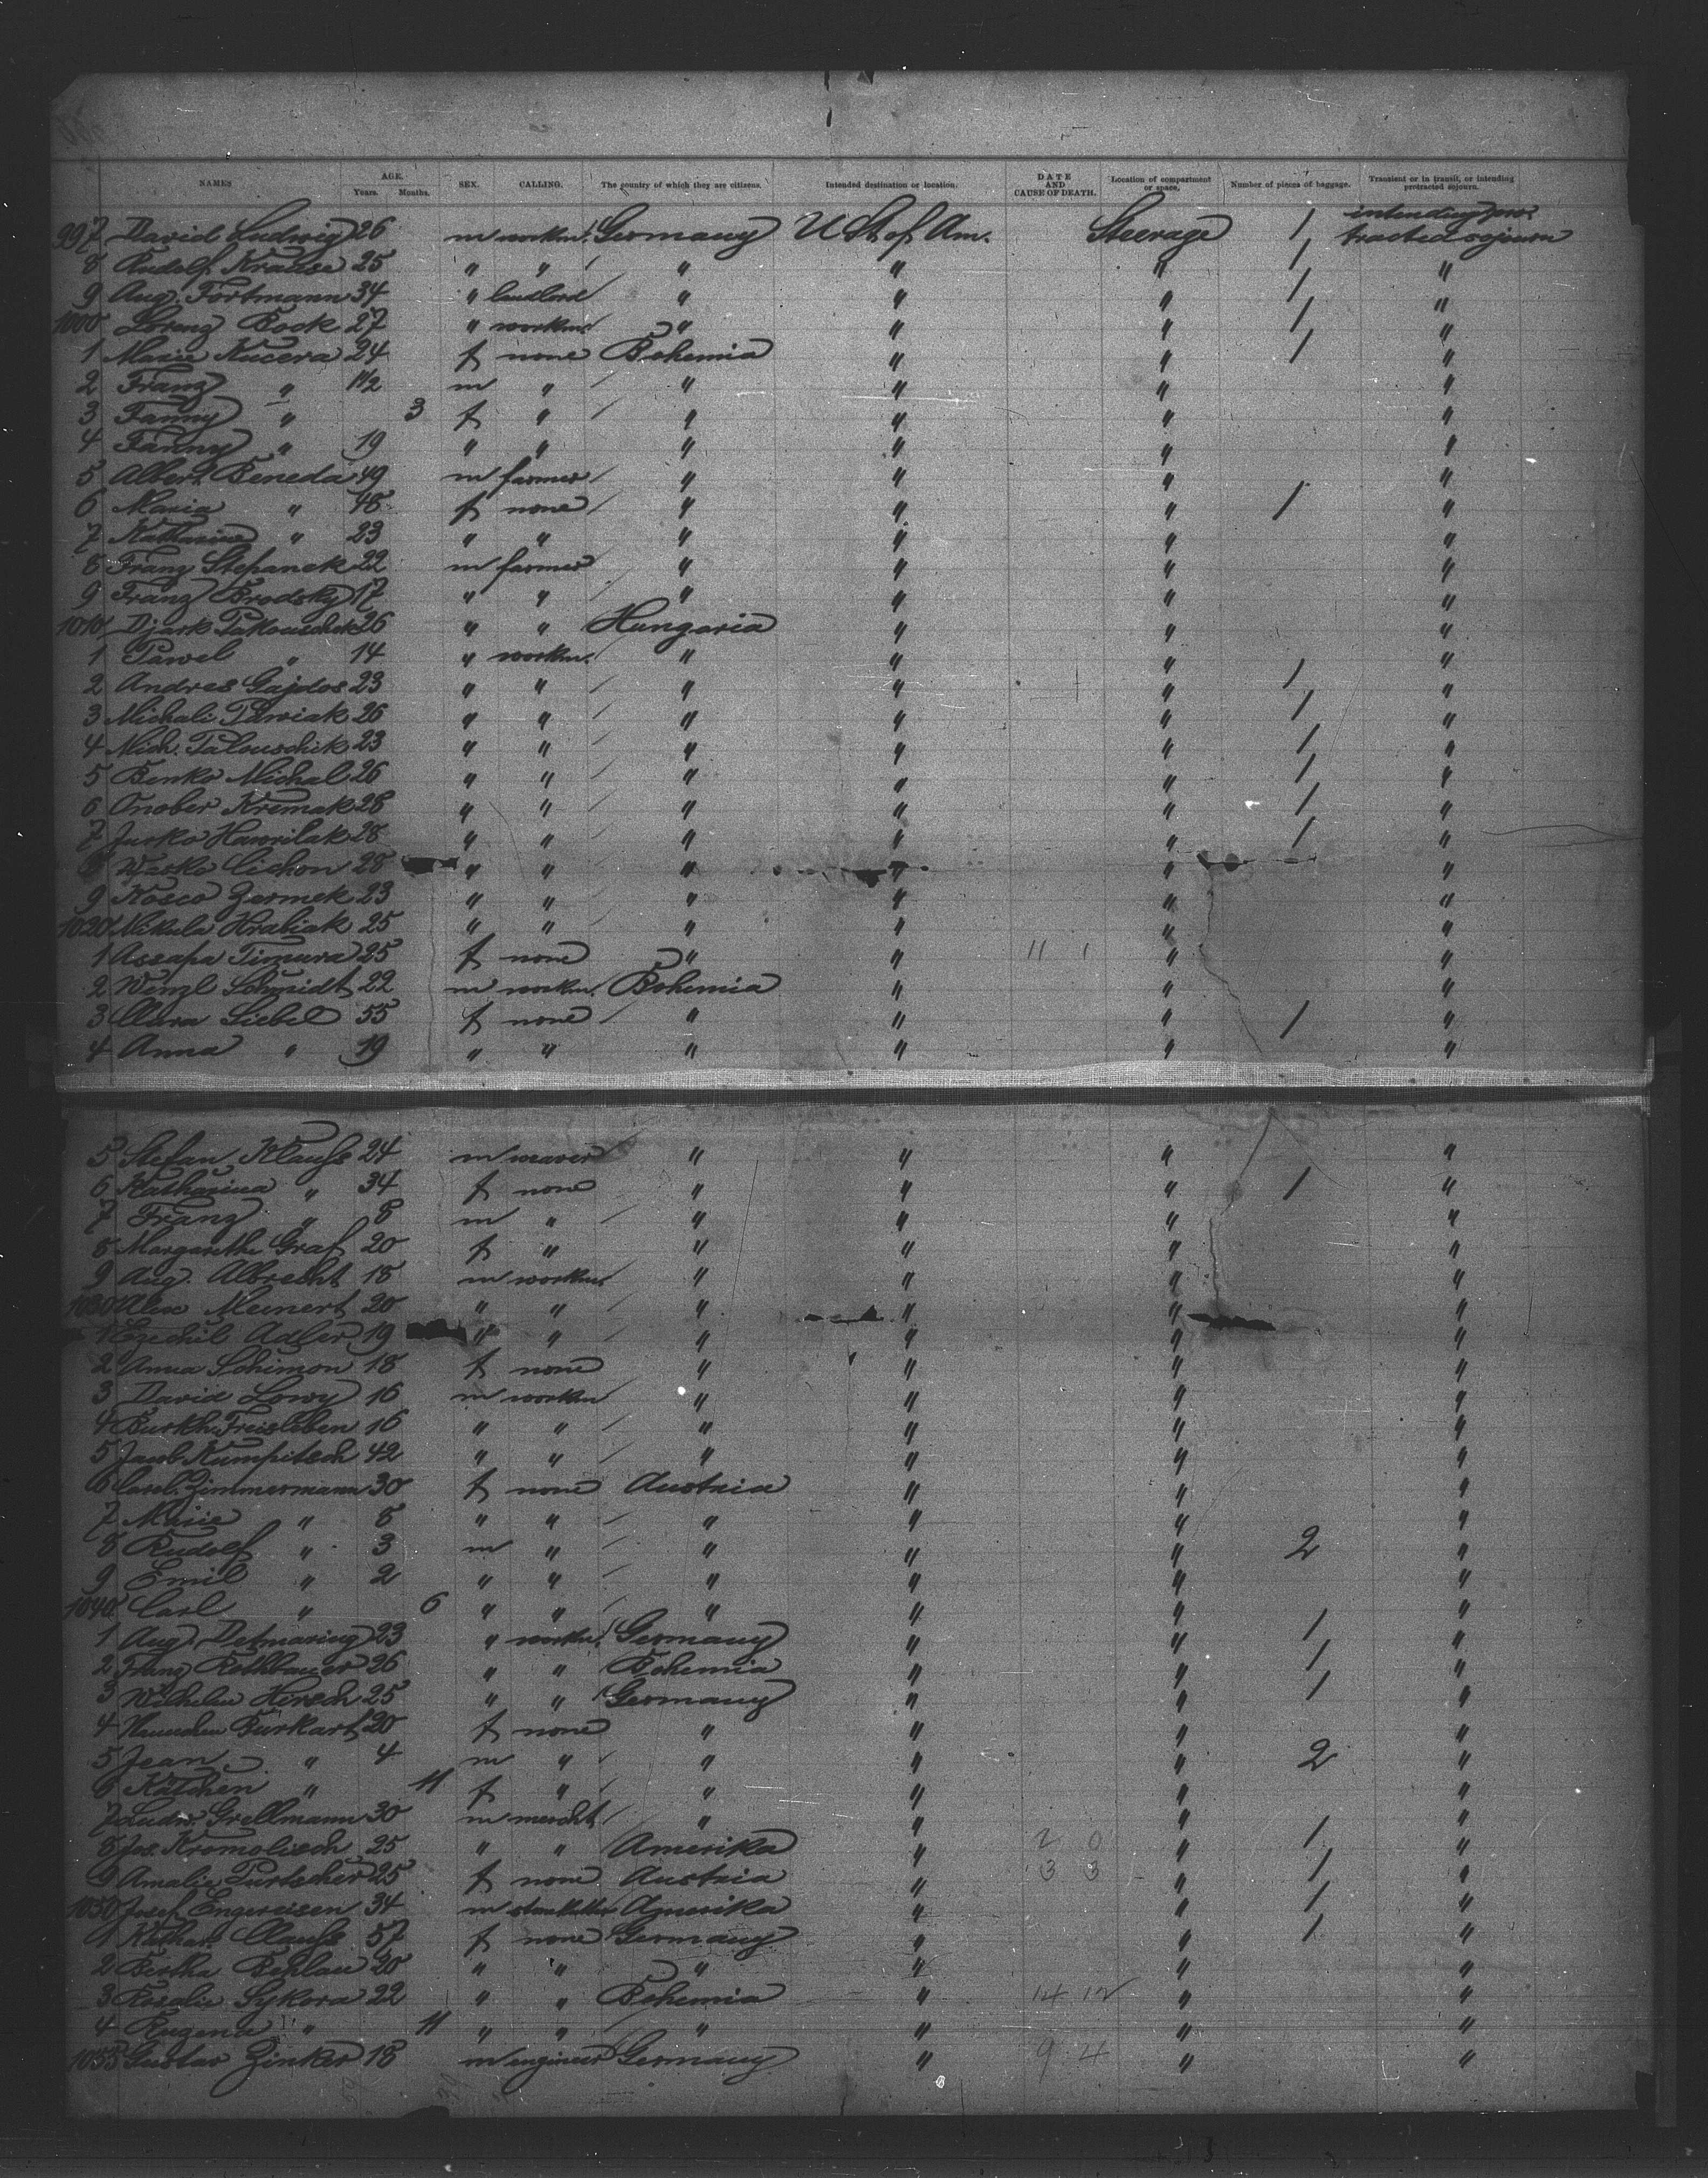 NAMES AGE. Years. Months. SEX. CALLING. The country of which they are citizens. Intended destination or location. DATE AND CAUSE OF DEATH. Location of compartment or space. Number of pieces of baggage. Transient or in transit, or intending protracted sojourn.
997 David Ludwig 26 m workm. Germany U St of Am. Steerage 1 intending protracted sojourn
8 Rudolf Krause 25 " " " " " 1 "
9 Aug. Fortmann 34 " landlord " " " 1 "
1000 Lorenz Bock 27 " workm. " " " 1 "
1 Marie Kucera 24 f none Bohemia " " 1 "
2 Franz " 1 1/2 m " " " " "
3 Fanny " 3 f " " " " "
4 Fanny " 19 " " " " " "
5 Albert Beneda 49 m farmer " " " "
6 Maria " 48 f none " " " 1 "
7 Katharine " 23 " " " " " "
8 Franz Stepanek 22 m farmer " " " "
9 Franz Brodsky 17 " " " " " "
1010 Djurk 26 " " Hungaria " " "
1 Pawel " 14 " workm. " " " 1 "
2 Andres Gajdos 23 " " " " " 1 "
3 Michali Pawiak 26 " " " " " 1 "
4 Mich. Palouschik 23 " " " " " 1 "
5 Benko Michal 26 " " " " " 1 "
6 Onober Kremak 28 " " " " " 1 "
7 Jurko Hawrilak 28 " " " " " 1 "
8 Wasko Cichon 28 " " " " " "
9 Kosco Zermek 23 " " " " " "
1020 Mikula Hrabiak 25 " " " " " "
1 Assapa Timura 25 f none " " 11 1 " "
2 Wenzl Schmidt 22 m workm. Bohemia " " "
3 Clara Siebel 55 f none " " " 1 "
4 Anna " 19 " " " " " "
5 Stefan Klauss 24 m weaver " " " "
6 Katharina " 34 f none " " " 1 "
7 Franz " 8 m " " " " "
8 Margarethe Graf 20 f " " " " "
9 Aug. Albrecht 18 m workm. " " " "
1030 Alex Meinert 20 " " " " " "
1 Ezechil Adler 19 " " " " " "
2 Anna Schimon 18 f none " " " "
3 David Lowy 16 m workm " " " "
4 Burkh. Freisleben 16 " " " " " "
5 Jacob Kumpitsch 42 " " " " " "
6 Carol. Zimmermann 30 f none Austria " " "
7 Marie " 8 " " " " " "
8 Rudolf " 3 m " " " " 2 "
9 Emil " 2 " " " " " "
1040 Carl " 6 " " " " " "
1 Aug. Detmaring 23 " workm. Germany " " 1 "
2 Franz Rothbauer 26 " " Bohemia " " 1 "
3 Wilhelm Hirsch 25 " " Germany " " 1 "
4 Burkart 20 f none " " " "
5 Jean " 4 m " " " " 2 "
6 Kätchen " 11 f " " " " "
7 Ludw. Grellmann 30 m mercht " " " 1 "
8 Jos. Kromolisch 25 " " Amerika " 2 0 " 1 "
9 Amalie Purtscher 25 f none Austria " 3 3 " 1 "
1050 Josef Engereisen 34 m Amerika " " 1 "
1 Kathar. Clauss 57 f none Germany " " 1 "
2 Bertha Behlau 20 " " " " " "
3 Rosalie Sykora 22 " " Bohemia " 14 12 " "
4 Rugena " 11 " " " " " "
1055 Gustav Zinker 18 m engineer Germany " 9 4 " "